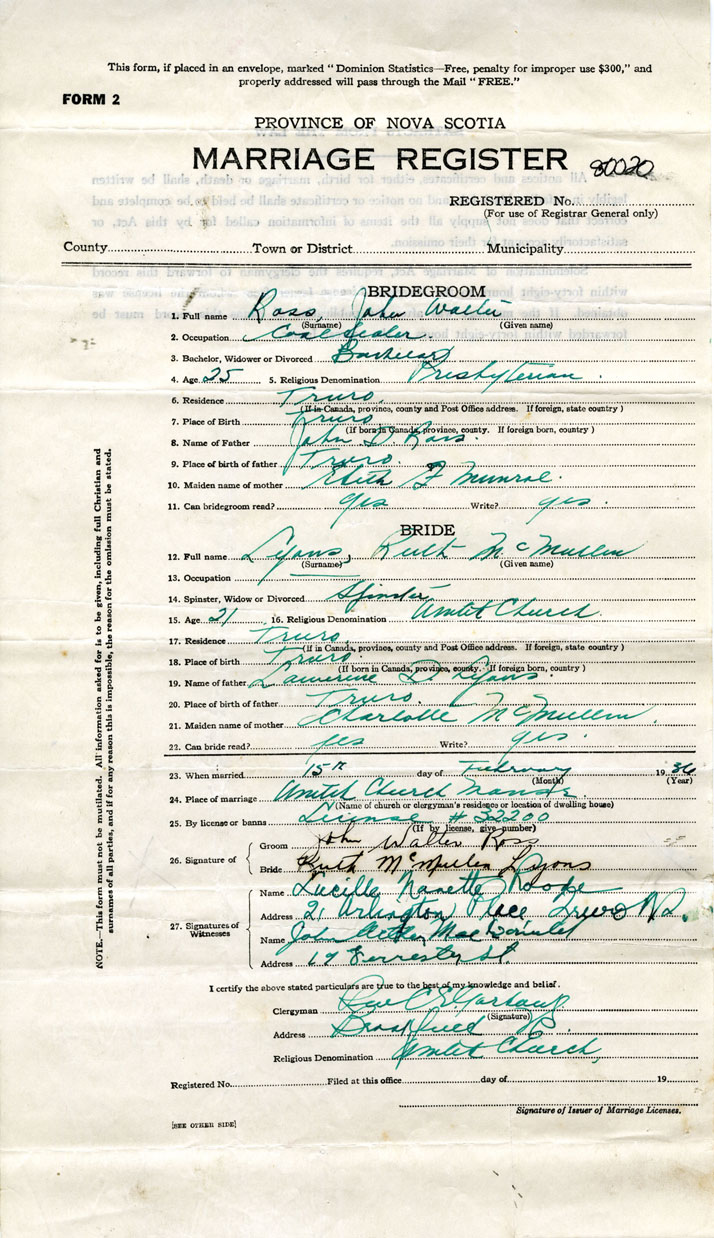 This form, if placed in an envelope, marked "Dominion Statistics—Free, penalty for improper use $300," and
properly addressed will pass through the Mail "FREE."
FORM 2
PROVINCE OF NOVA SCOTIA
MARRIAGE REGISTER 80020
REGISTERED No.
(For use of Registrar General only)
County Town or District Municipality
BRIDEGROOM
1. Full name Ross, John Walter
(Surname) (Given name)
2. Occupation Coal Dealer
3. Bachelor, Widower or Divorced Bachelor
4. Age 25 5. Religious Denomination Presbyterian.
6. Residence Truro.
(If in Canada, province, county and Post Office address. If foreign, state country)
7. Place of Birth Truro
(If born in Canada, province, county. If foreign born, country)
8. Name of Father John D. Ross.
9. Place of birth of father Truro.
10. Maiden name of mother F Munroe.
11. Can bridegroom read? yes Write? yes.
BRIDE
12. Full name Lyons, Ruth McMullen
(Surname) (Given name)
13. Occupation
14. Spinster, Widow or Divorced Spinster
15. Age 21 16. Religious Denomination United Church.
17. Residence Truro.
(If in Canada, province, county and Post Office address. If foreign, state country)
18. Place of birth Truro.
(If born in Canada, province, county. If foreign born, country)
19. Name of father Lawrence D Lyons.
20. Place of birth of father Truro.
21. Maiden name of mother Charlotte McMullen.
22. Can bride read? yes Write? yes.
23. When married 15th day of February 1936
(Month) (Year)
24. Place of marriage United Church Manse.
(Name of church or clergyman's residence or location of dwelling house)
25. By license or banns License # 32200
(If by license, give number)
26. Signature of
Groom John Walter Ross
Bride Ruth McMullen Lyons
27. Signatures of Witnesses
Name Lucille Nanette
Address 21 Arlington Place Truro N.S.
Name John
Address 17 Forrester St.
I certify the above stated particulars are true to the best of my knowledge and belief.
Clergyman Rev C E
(Signature)
Address
Religious Denomination United Church,
Registered No. Filed at this office day of 19
Signature of Issuer of Marriage Licenses.
[SEE OTHER SIDE]
NOTE.—This form must not be mutilated. All information asked for is to be given, including full Christian and
surnames of all parties, and if for any reason this is impossible, the reason for the omission must be stated.